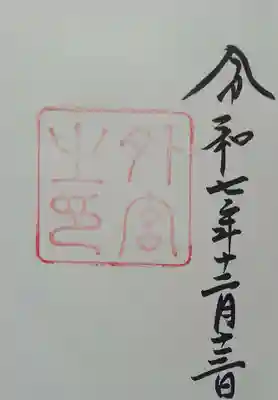 令和七年十二月十三日
外宮
之印